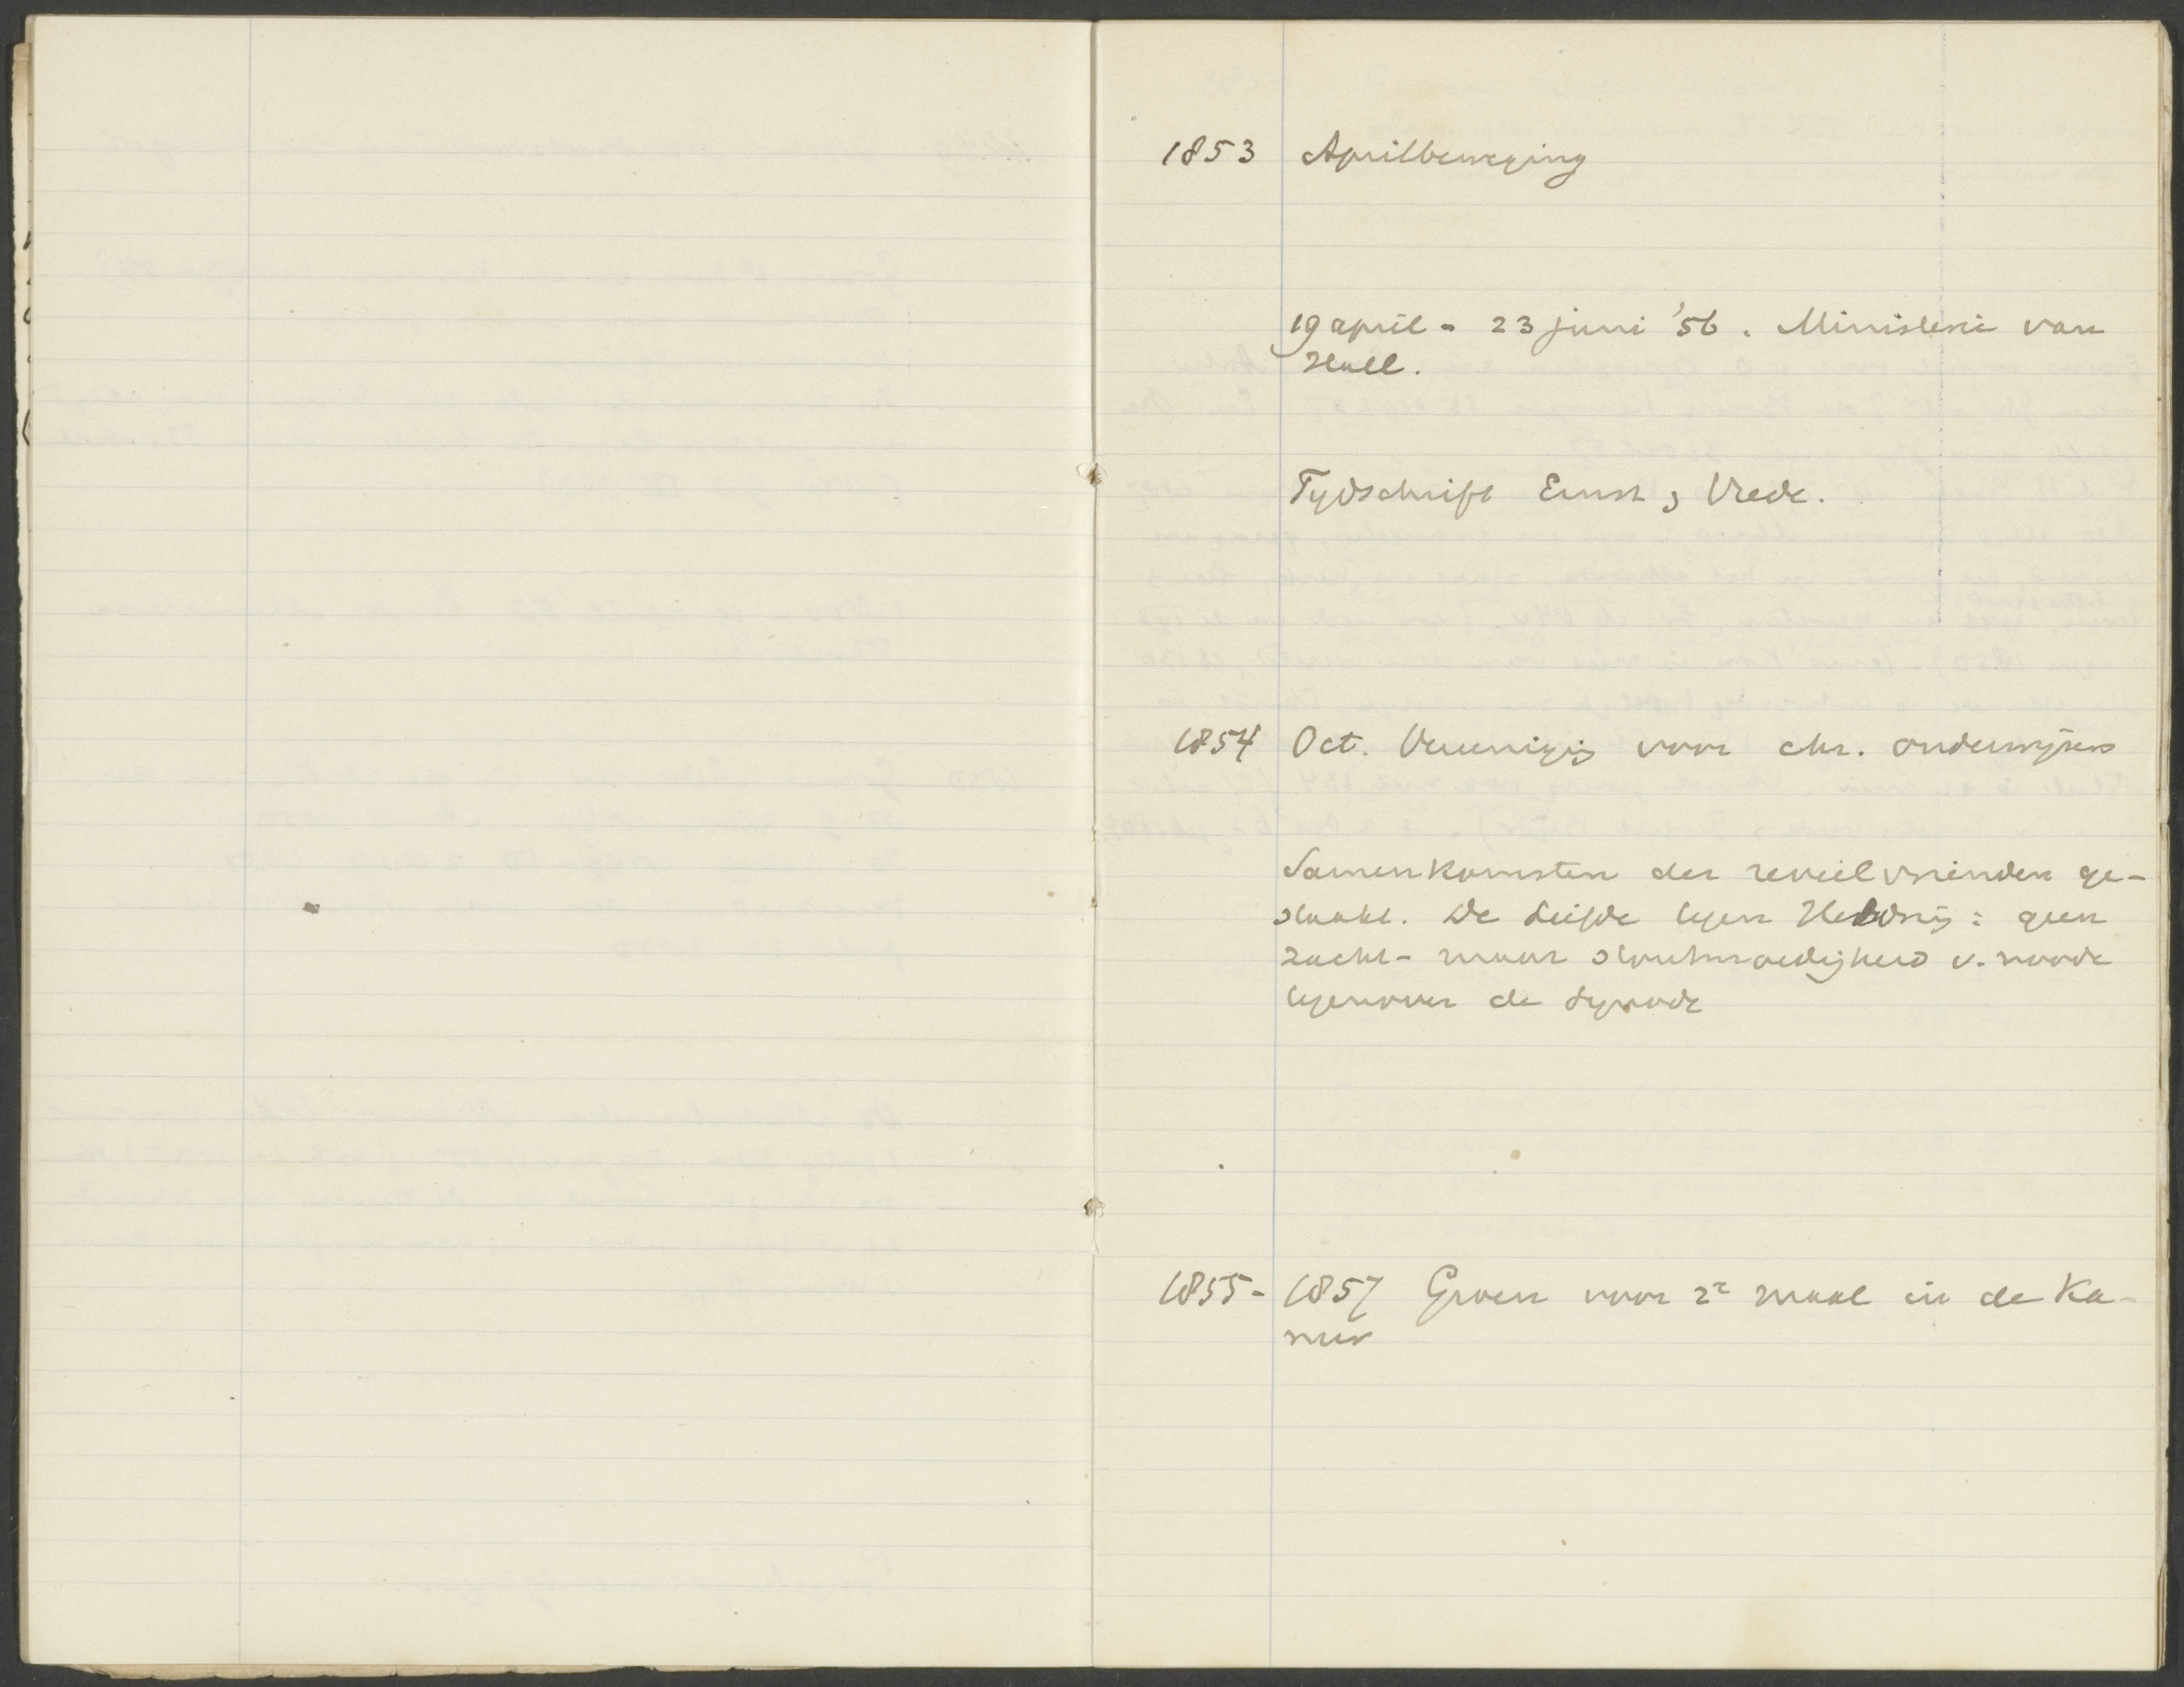 1853 Aprilbeweging
19 april - 23 juni '56. Ministerie van
Hall.
Tydschrift Ernst & Vrede.
1854 Oct. Vereenigig voor chr. onderwijzers
Samenkomsten der reveilvrienden ge-
staakt. De Liefde tegen Heldrig: geen
zacht- maar stoutmoedigheid v. noode
tegenover de synode
1855- 1857 Groen voor 2e maal in de Ka-
mer